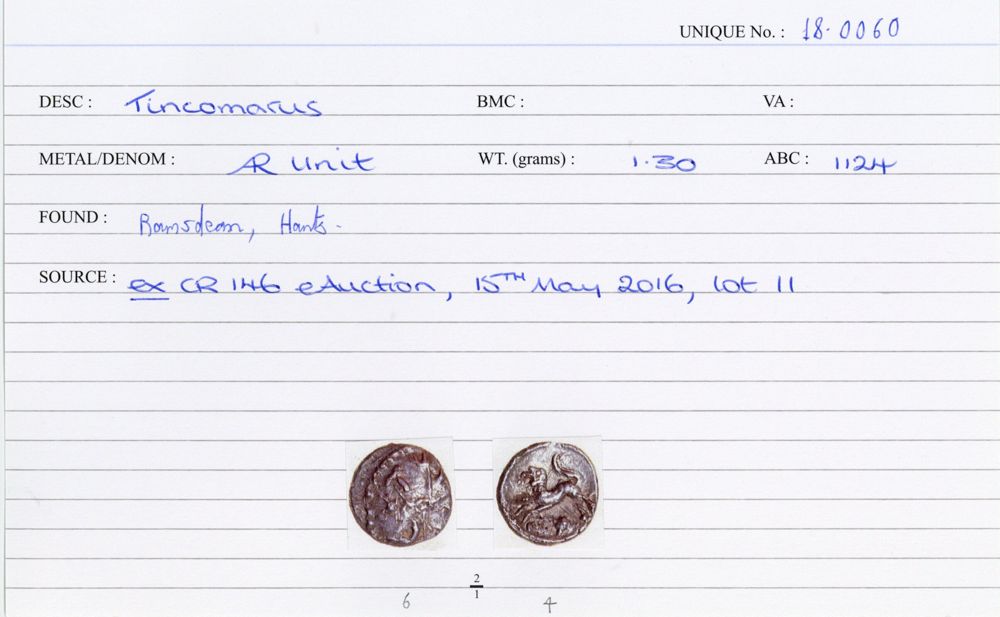 UNIQUE No. : 18-0060
DESC : Tincomarus BMC : VA :
METAL/DENOM : AR Unit WT. (grams) : 1.30 ABC : 1124
FOUND : Ramsdean, Hants.
SOURCE : ex CR 146 eAuction, 15TH May 2016, lot 11
2
1
6 4